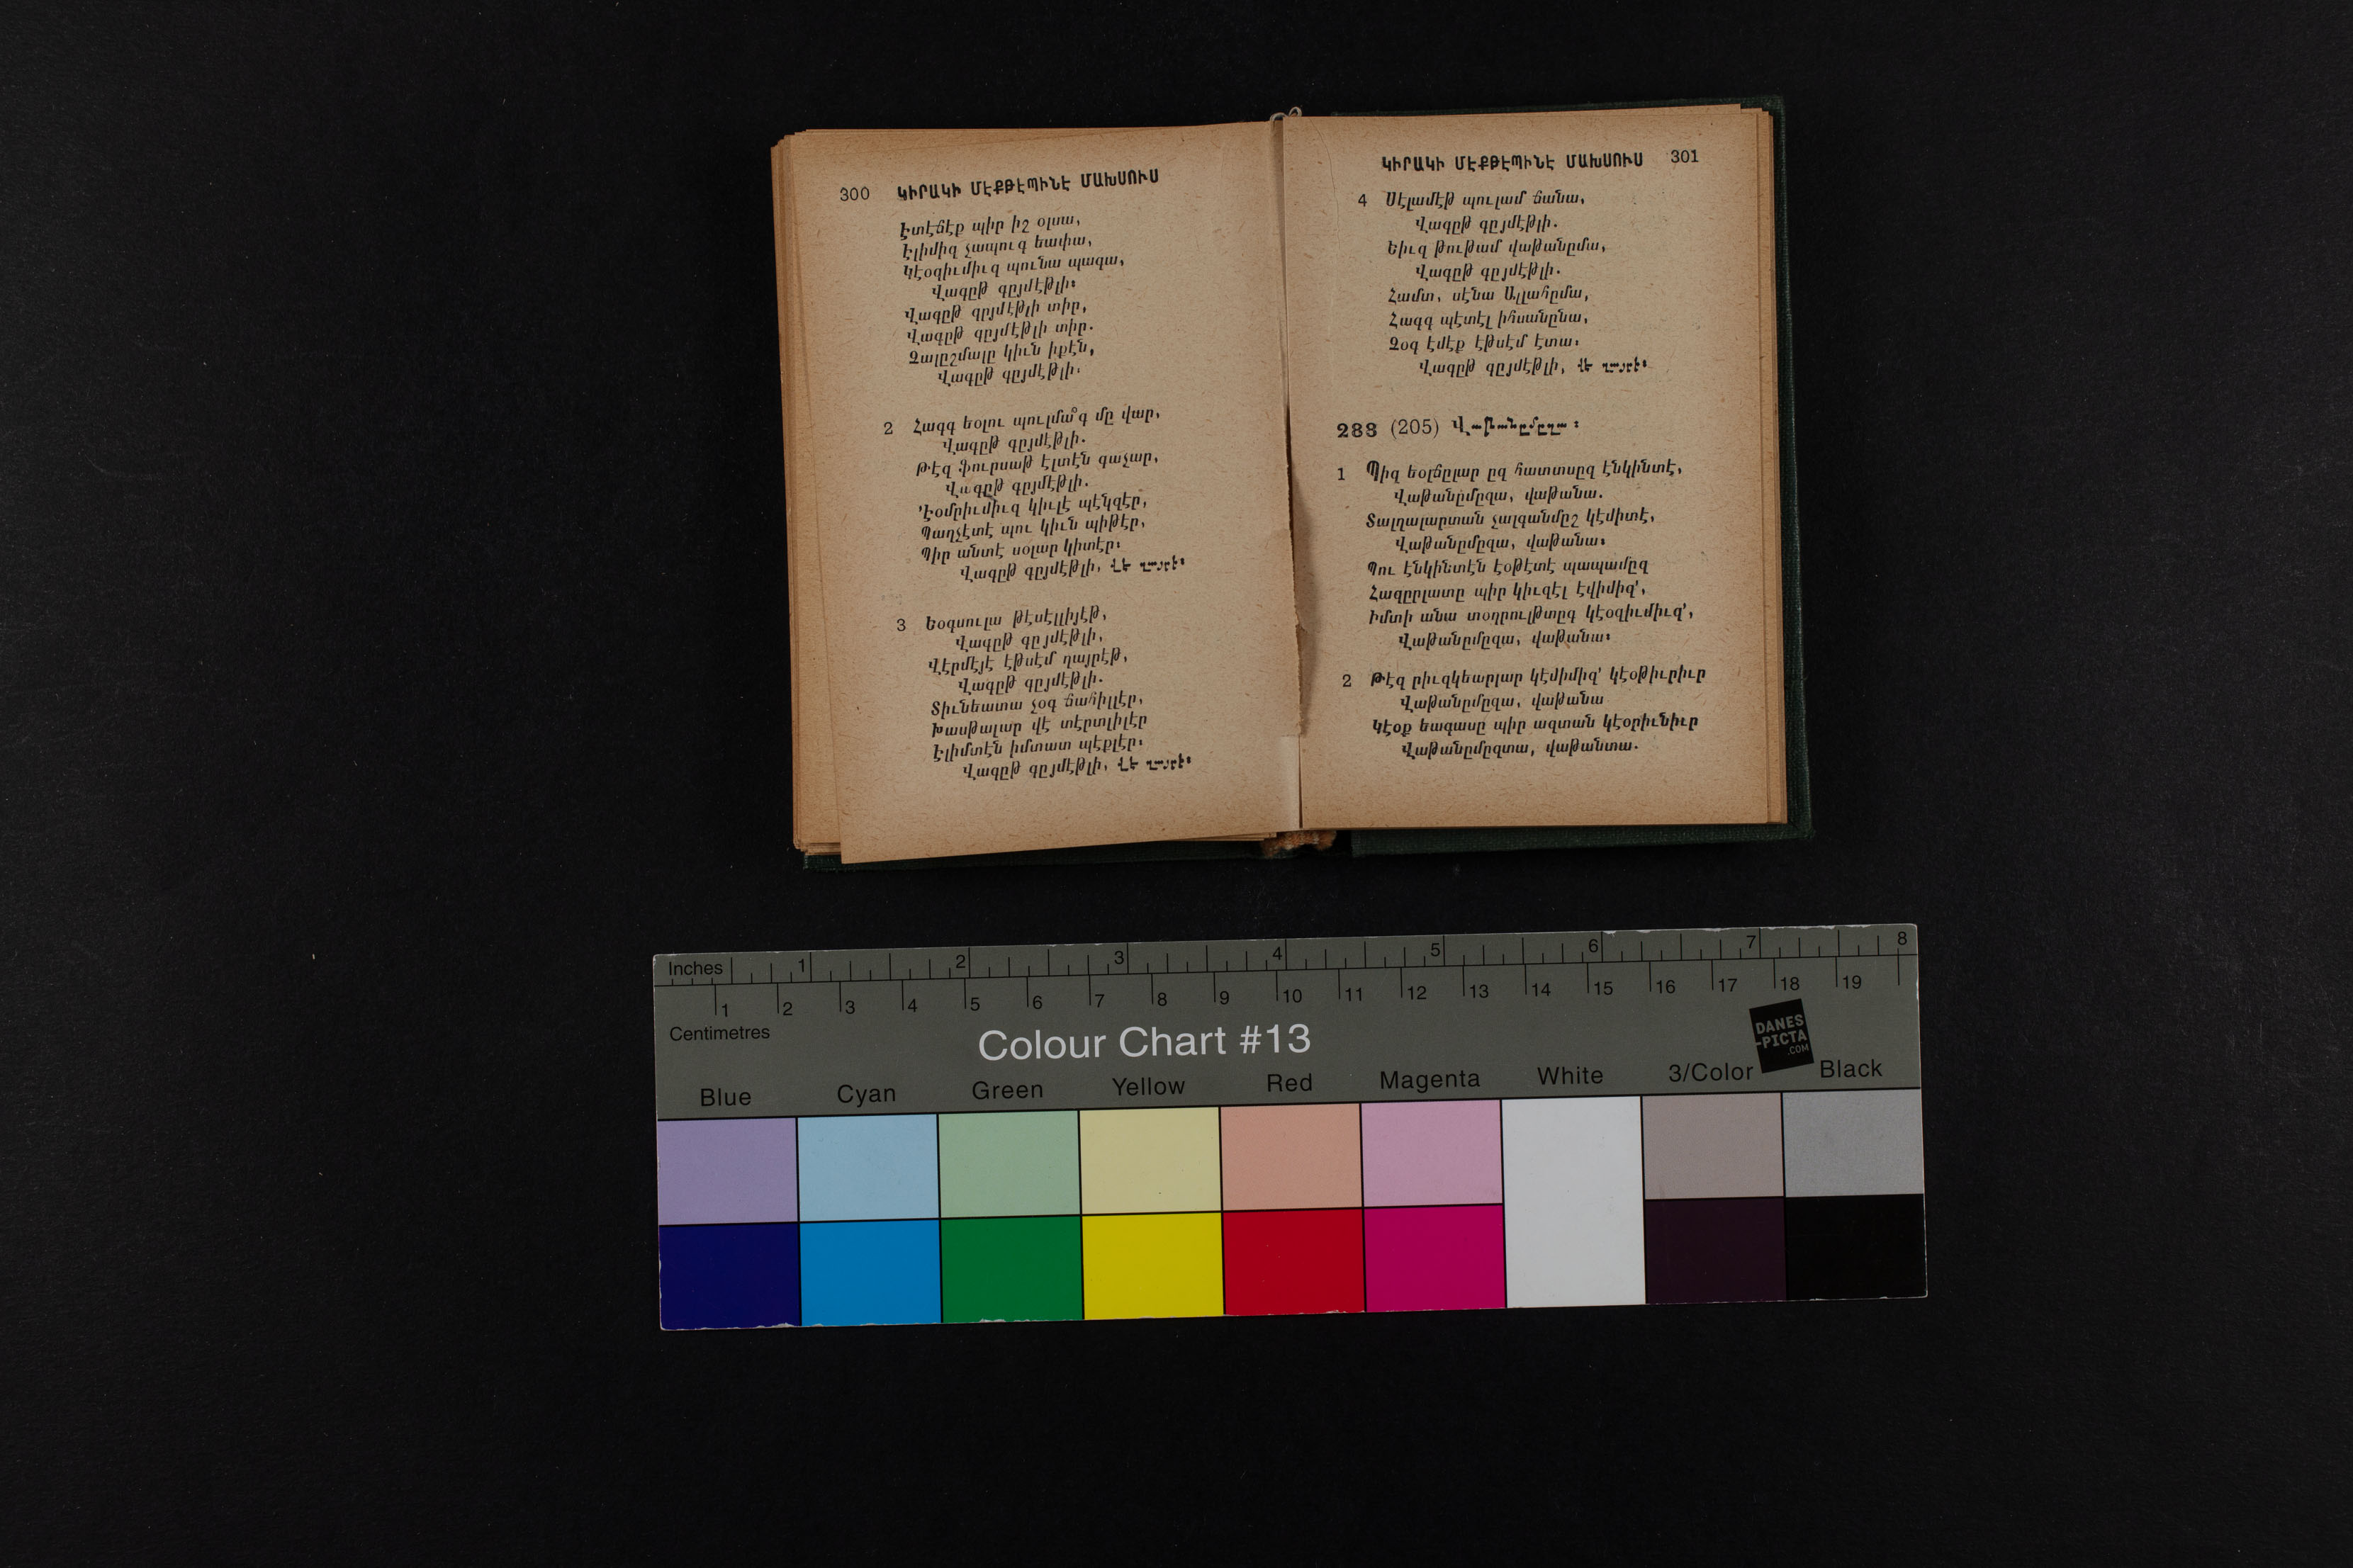 300 ԿԻՐԱԿԻ ՄԷՔԹԷՊԻՆԷ ՄԱԽՍՈՒՍ
Էտէճէք պիր իշ օլսա,
Էլիմիզ չապուգ եափա,
Կէօզիւմիւզ պունա պագա,
Վագըթ գըյմէթլի։
Վագըթ գըյմէթլի տիր,
Վագըթ գըյմէթլի տիր.
Չալըշմալը կիւն իքէն,
Վագըթ գըյմէթլի.
2 Հագգ եօլու պուլմա՞գ մը վար,
Վագըթ գըյմէթլի.
Թէզ ֆուրսաթ էլտէն գաչար,
Վագըթ գըյմէթլի.
՚Էօմրիւմիւզ կիւլէ պէնզէր,
Պաղչէտէ պու կիւն պիթէր,
Պիր անտէ սօլար կիտէր։
Վագըթ գըյմէթլի, վե ղայրէ։
3 Եօգսուլա թէսէլլիյէթ,
Վագըթ գըյմէթլի,
Վէրմէյէ էթսէմ ղայրէթ,
Վագըթ գըյմէթլի.
Տիւնեատա չօգ ճահիլլէր,
Խասթալար վէ տէրտլիլէր
Էլիմտէն իմտատ պէքլէր։
Վագըթ գըյմէթլի, վե ղայրէ։
ԿԻՐԱԿԻ ՄԷՔԹԷՊԻՆԷ ՄԱԽՍՈՒՍ 301
4 Սէլամէթ պուլամ ճանա,
Վագըթ գըյմէթլի.
Եիւզ թութամ վաթանըմա,
Վագըթ գըյմէթլի.
Համտ, սէնա Ալլահըմա,
Հագգ պէտէլ իհսանընա,
Չօգ էմէք էթսէմ էտա։
Վագըթ գըյմէթլի, վե ղայրէ։
283 (205) Վաթանըմըզա։
1 Պիզ եօլճըլար ըզ հատտսըզ էնկինտէ,
Վաթանըմըզա, վաթանա.
Տալղալարտան չալգանմըշ կէմիտէ,
Վաթանըմըզա, վաթանա։
Պու էնկինտէն էօթէտէ պապամըզ
Հազըրլատը պիր կիւզէլ էվիմիզ՚,
Իմտի անա տօղրուլթտըգ կէօզիւմիւզ՚,
Վաթանըմըզա, վաթանա։
2 Թէզ րիւզկեարլար կէմիմիզ՚ կէօթիւրիւր
Վաթանըմըզա, վաթանա
Կէօք եագասը պիր ազտան կէօրիւնիւր
Վաթանըմըզտա, վաթանտա.
Inches 1 2 3 4 5 6 7 8
1 2 3 4 5 6 7 8 9 10 11 12 13 14 15 16 17 18 19
Centimetres
Colour Chart #13
DANES
-PICTA
.COM
Blue Cyan Green Yellow Red Magenta White 3/Color Black